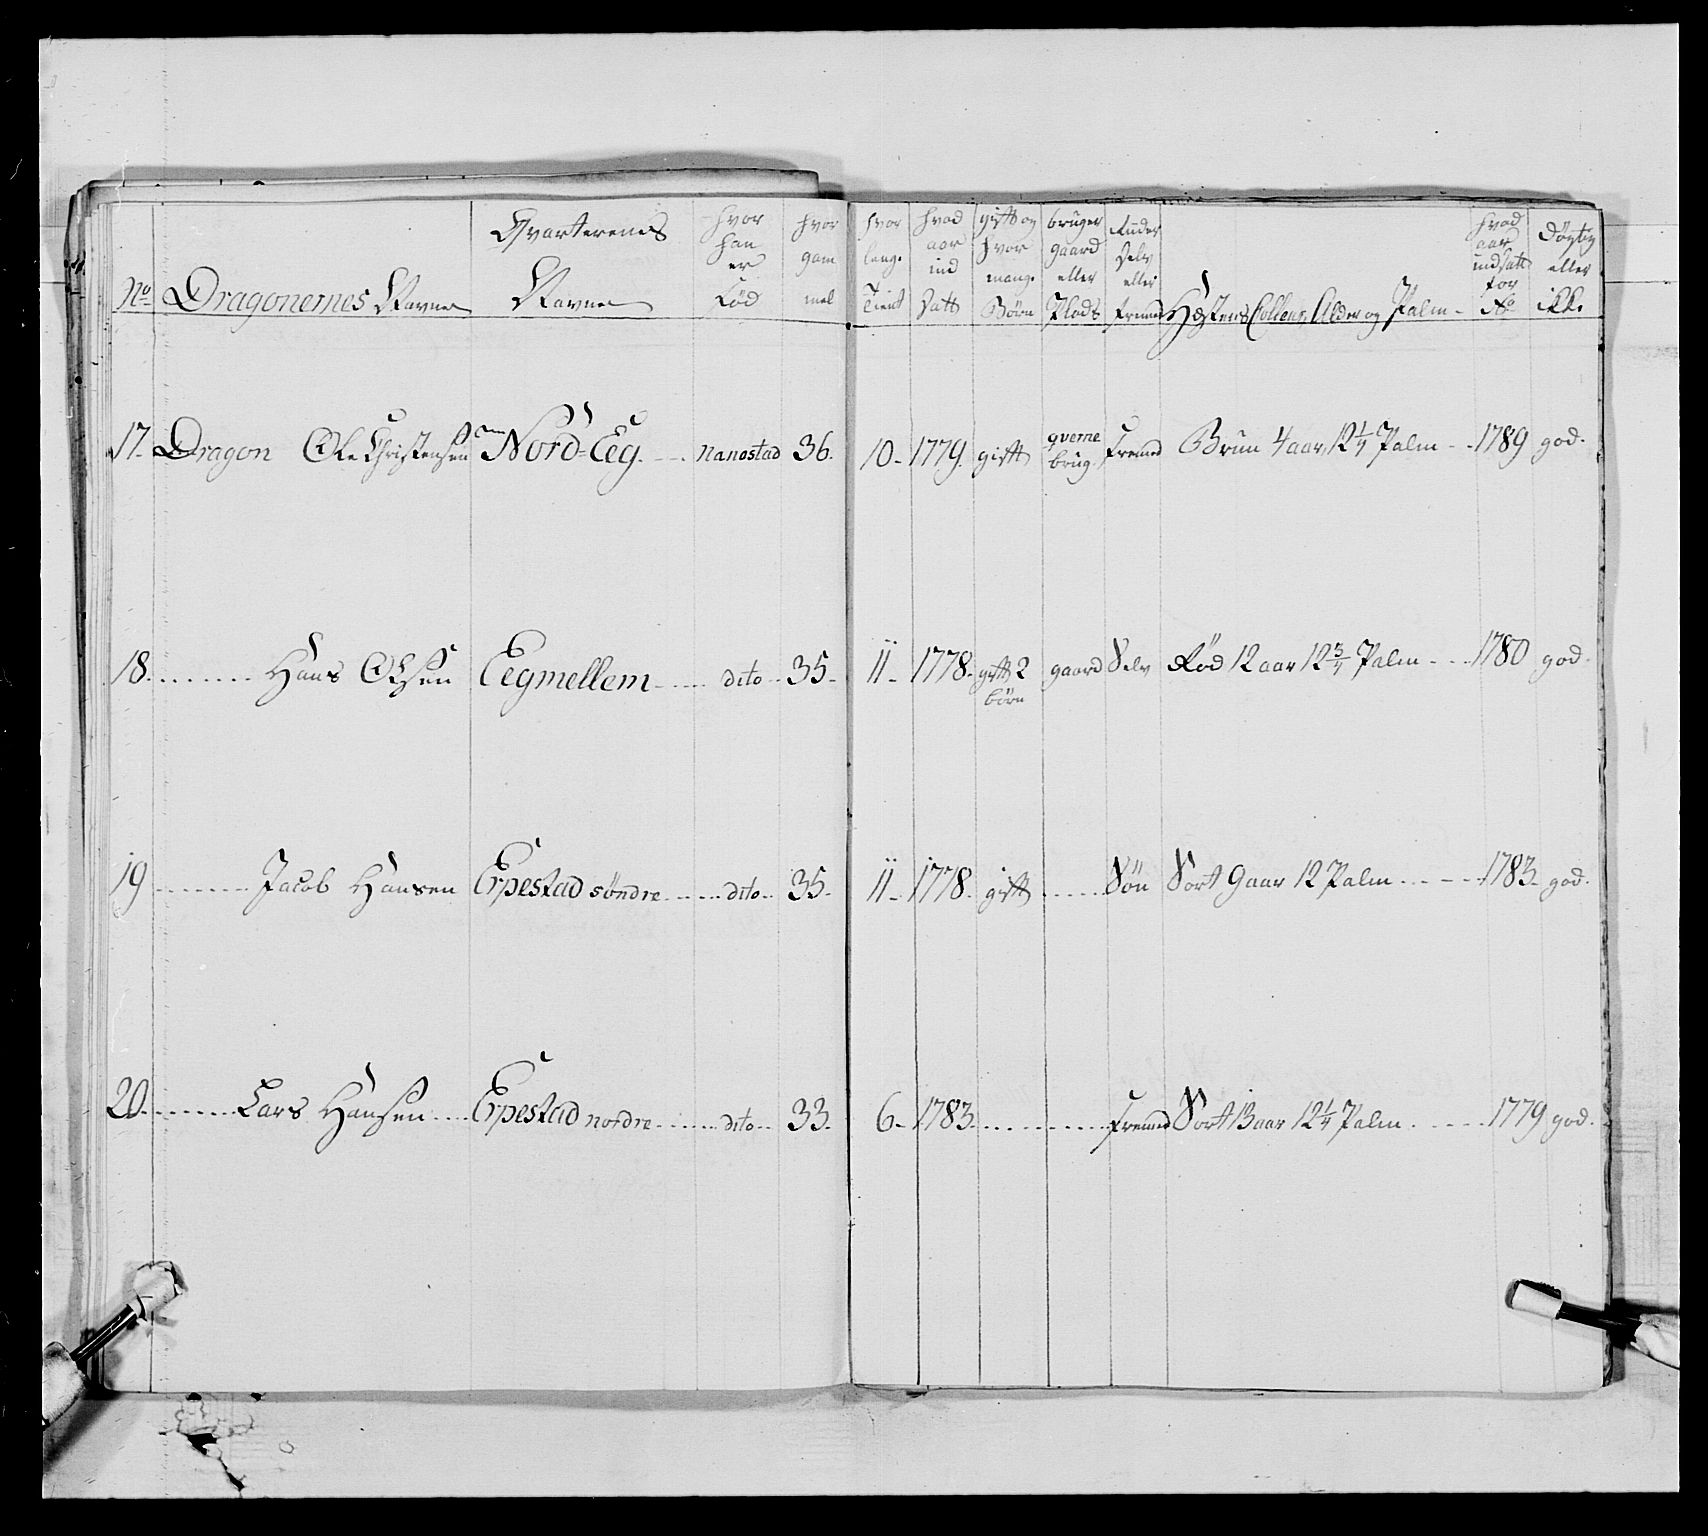 No Dragonernes Navne
Qvarterenes Navne
hvor han er Fød
hvor gam mel
hvor lenge Tient
hvad aar ind Satt
gift og hvor mange Børn
bruger gaard eller Plads
Ruder Selv eller fremed
Hæstens Collour Alder og Palm
hvad aar indsatt for No
døgtig eller ikke
17. Dragon Ole Christensen Nord=Eeg. Nanestad 36. 10. 1779. gift qverne brug Fremed Brun 4 aar, 12 1/4 Palm 1789 god.
18. Hans Olsen Eegmellem dito 35. 11. 1778. gift 2 børn gaard Selv Rød 12 aar 12 3/4 Palm 1780 god.
19 Jacob Hansen Erpestad søndre dito 35. 11. 1778. gift Søn Sort 9 aar 12 Palm 1783. god.
20. Lars Hansen Erpestad nordre dito 33. 6. 1783. Fremed Sort 13 aar 12 1/4 Palm 1779 god.